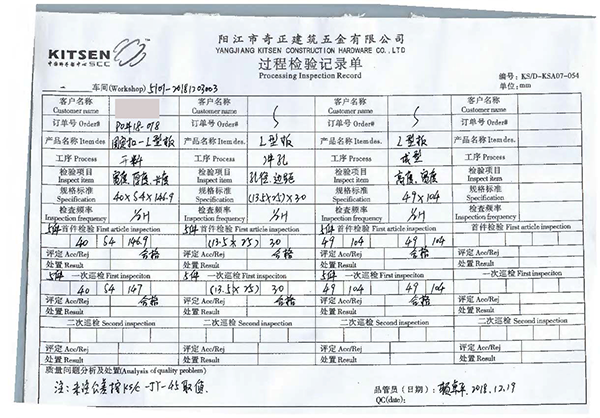 阳江市奇正建筑五金有限公司
KITSEN SCC YANGJIANG KITSEN CONSTRUCTION HARDWARE CO., LTD
过程检验记录单
Processing Inspection Record
编号：KS/D-KSA07-054
一 车间(Workshop) 5101-20181203003 单位：mm
客户名称 Customer name 客户名称 Customer name 客户名称 Customer name
订单号 Order# PO418-018 订单号 Order# 订单号 Order#
产品名称 Item des. L型板 产品名称 Item des. L型板 产品名称 Item des. L型板
工序 Process 下料 工序 Process 冲孔 工序 Process 成型
检验项目 Inspect item 宽度、厚度、长度 检验项目 Inspect item 孔径、边距 检验项目 Inspect item 高度、宽度
规格标准 Specification 40×54×146.9 规格标准 Specification (13.5×25)×30 规格标准 Specification 49×104
检查频率 Inspection frequency 1/H 检查频率 Inspection frequency 1/H 检查频率 Inspection frequency 1/H
5件 首件检验 First article inspection 5件 首件检验 First article inspection 5件 首件检验 First article inspection 首件检验 First article inspection
40 54 146.9 (13.5×25) 30 49 104 49 104
评定 Acc/Rej 合格 评定 Acc/Rej 合格 评定 Acc/Rej 合格
处置 Result 处置 Result 处置 Result
5件 一次巡检 First inspeciton 5件 一次巡检 First inspeciton 5件 一次巡检 First inspeciton 一次巡检 First inspeciton
40 54 147 (13.5×25) 30 49 104 49 104
评定 Acc/Rej 合格 评定 Acc/Rej 合格 评定 Acc/Rej 合格
处置 Result 处置 Result 处置 Result
二次巡检 Second inspection 二次巡检 Second inspection 二次巡检 Second inspection 二次巡检 Second inspection
评定 Acc/Rej 评定 Acc/Rej 评定 Acc/Rej
处置 Result 处置 Result 处置 Result
质量问题分析及处置(Analysis of quality problem)
注：未注公差按KS/C-JY-45取值. 品管员（日期）： 2018.12.19
QC(date):